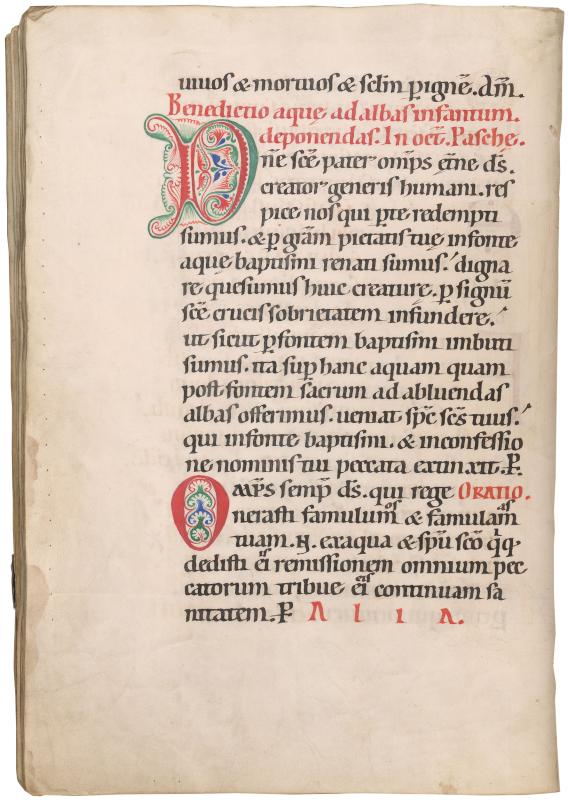 uiuos & mortuos & sclm p igne̅. Am̅.
Benedictio aque ad albas infantum.
deponendas. In oct̅. Pasche.
Dn̅e sce̅ pater om̅ps et̅ne ds̅.
creator generis humani. res
pice nos qui p te redempti
sumus. & p gr̅am pietatis tuę in fonte
aque baptismi renati sumus. digna
re quesumus huic creature. p signu̅
sc̅e crucis sobrietatem infundere.
ut sicut p fontem baptismi imbuti
sumus. ita sup hanc aquam quam
post fontem sacrum ad abluendas
albas offerimus. ueniat sp̅c sc̅s tuus.
qui in fonte baptismi. & in confessio
ne nominis tui peccata extinxit. P.
Om̅ps semp̅ ds̅. qui rege ORATIO.
nerasti famulum os & famulam as
tuam. N̅. ex aqua & sp̅u sc̅o q̅q.
dedisti ei̅ remissionem omnium pec
catorum tribue ei̅ continuam sa
nitatem. P ALIA.